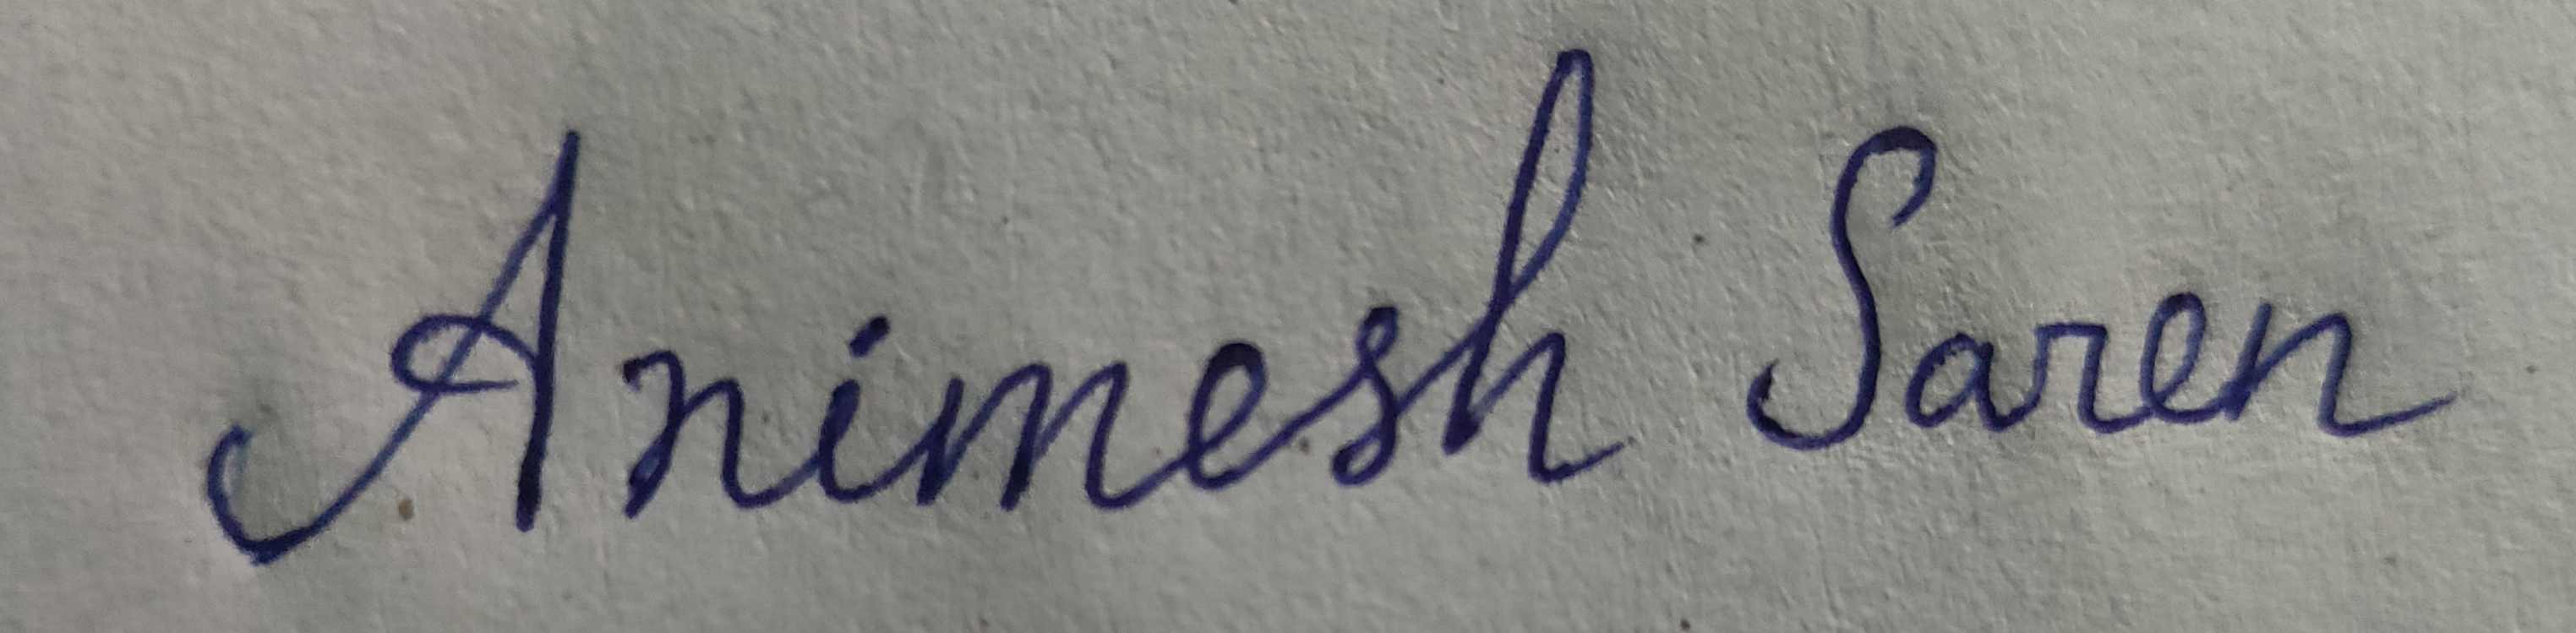 Animesh Saren